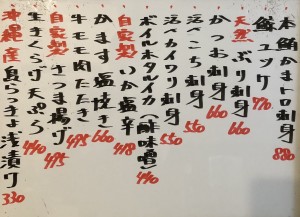 本鮪かまトロ刺身 880
鰺ユッケ 770
天然 ぶり刺身 660
かつお刺身 660
活〆カイワリ刺身 550
活〆刺身 550
ボイルホタルイカ(酢味噌) 440
自家製 いか塩辛 418
かます塩焼き 660
牛モモ肉たたき 495
自家製 さつま揚げ 495
生きくらげ天ぷら 440
沖縄産 島らっきょ浅漬け 330